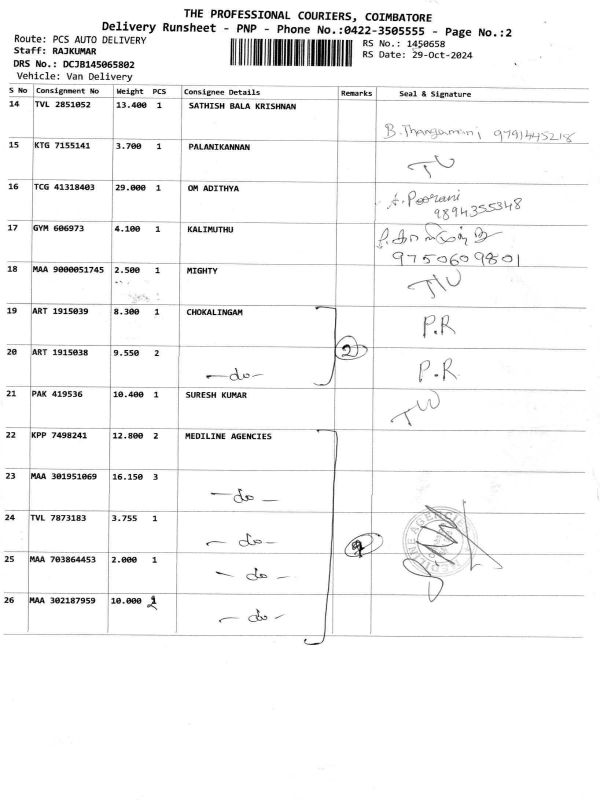 THE PROFESSIONAL COURIERS, COIMBATORE
Delivery Runsheet - PNP - Phone No.:0422-3505555 - Page No.:2
Route: PCS AUTO DELIVERY
Staff: RAJKUMAR
DRS No.: DCJB145065802
Vehicle: Van Delivery
RS No.: 1450658
RS Date: 29-Oct-2024
S No Consignment No Weight PCS Consignee Details Remarks Seal & Signature
14 TVL 2851052 13.400 1 SATHISH BALA KRISHNAN
B.Thangamani 9791445218
15 KTG 7155141 3.700 1 PALANIKANNAN
16 TCG 41318403 29.000 1 OM ADITHYA
A.Poorani
9894355348
17 GYM 606973 4.100 1 KALIMUTHU
9750609801
18 MAA 9000051745 2.500 1 MIGHTY
19 ART 1915039 8.300 1 CHOKALINGAM P.R
2
20 ART 1915038 9.550 2 -do- P.R.
21 PAK 419536 10.400 1 SURESH KUMAR
22 KPP 7498241 12.800 2 MEDILINE AGENCIES
23 MAA 301951069 16.150 3 -do-
24 TVL 7873183 3.755 1 -do-
9
25 MAA 703864453 2.000 1 -do-
26 MAA 302187959 10.000 2 -do-